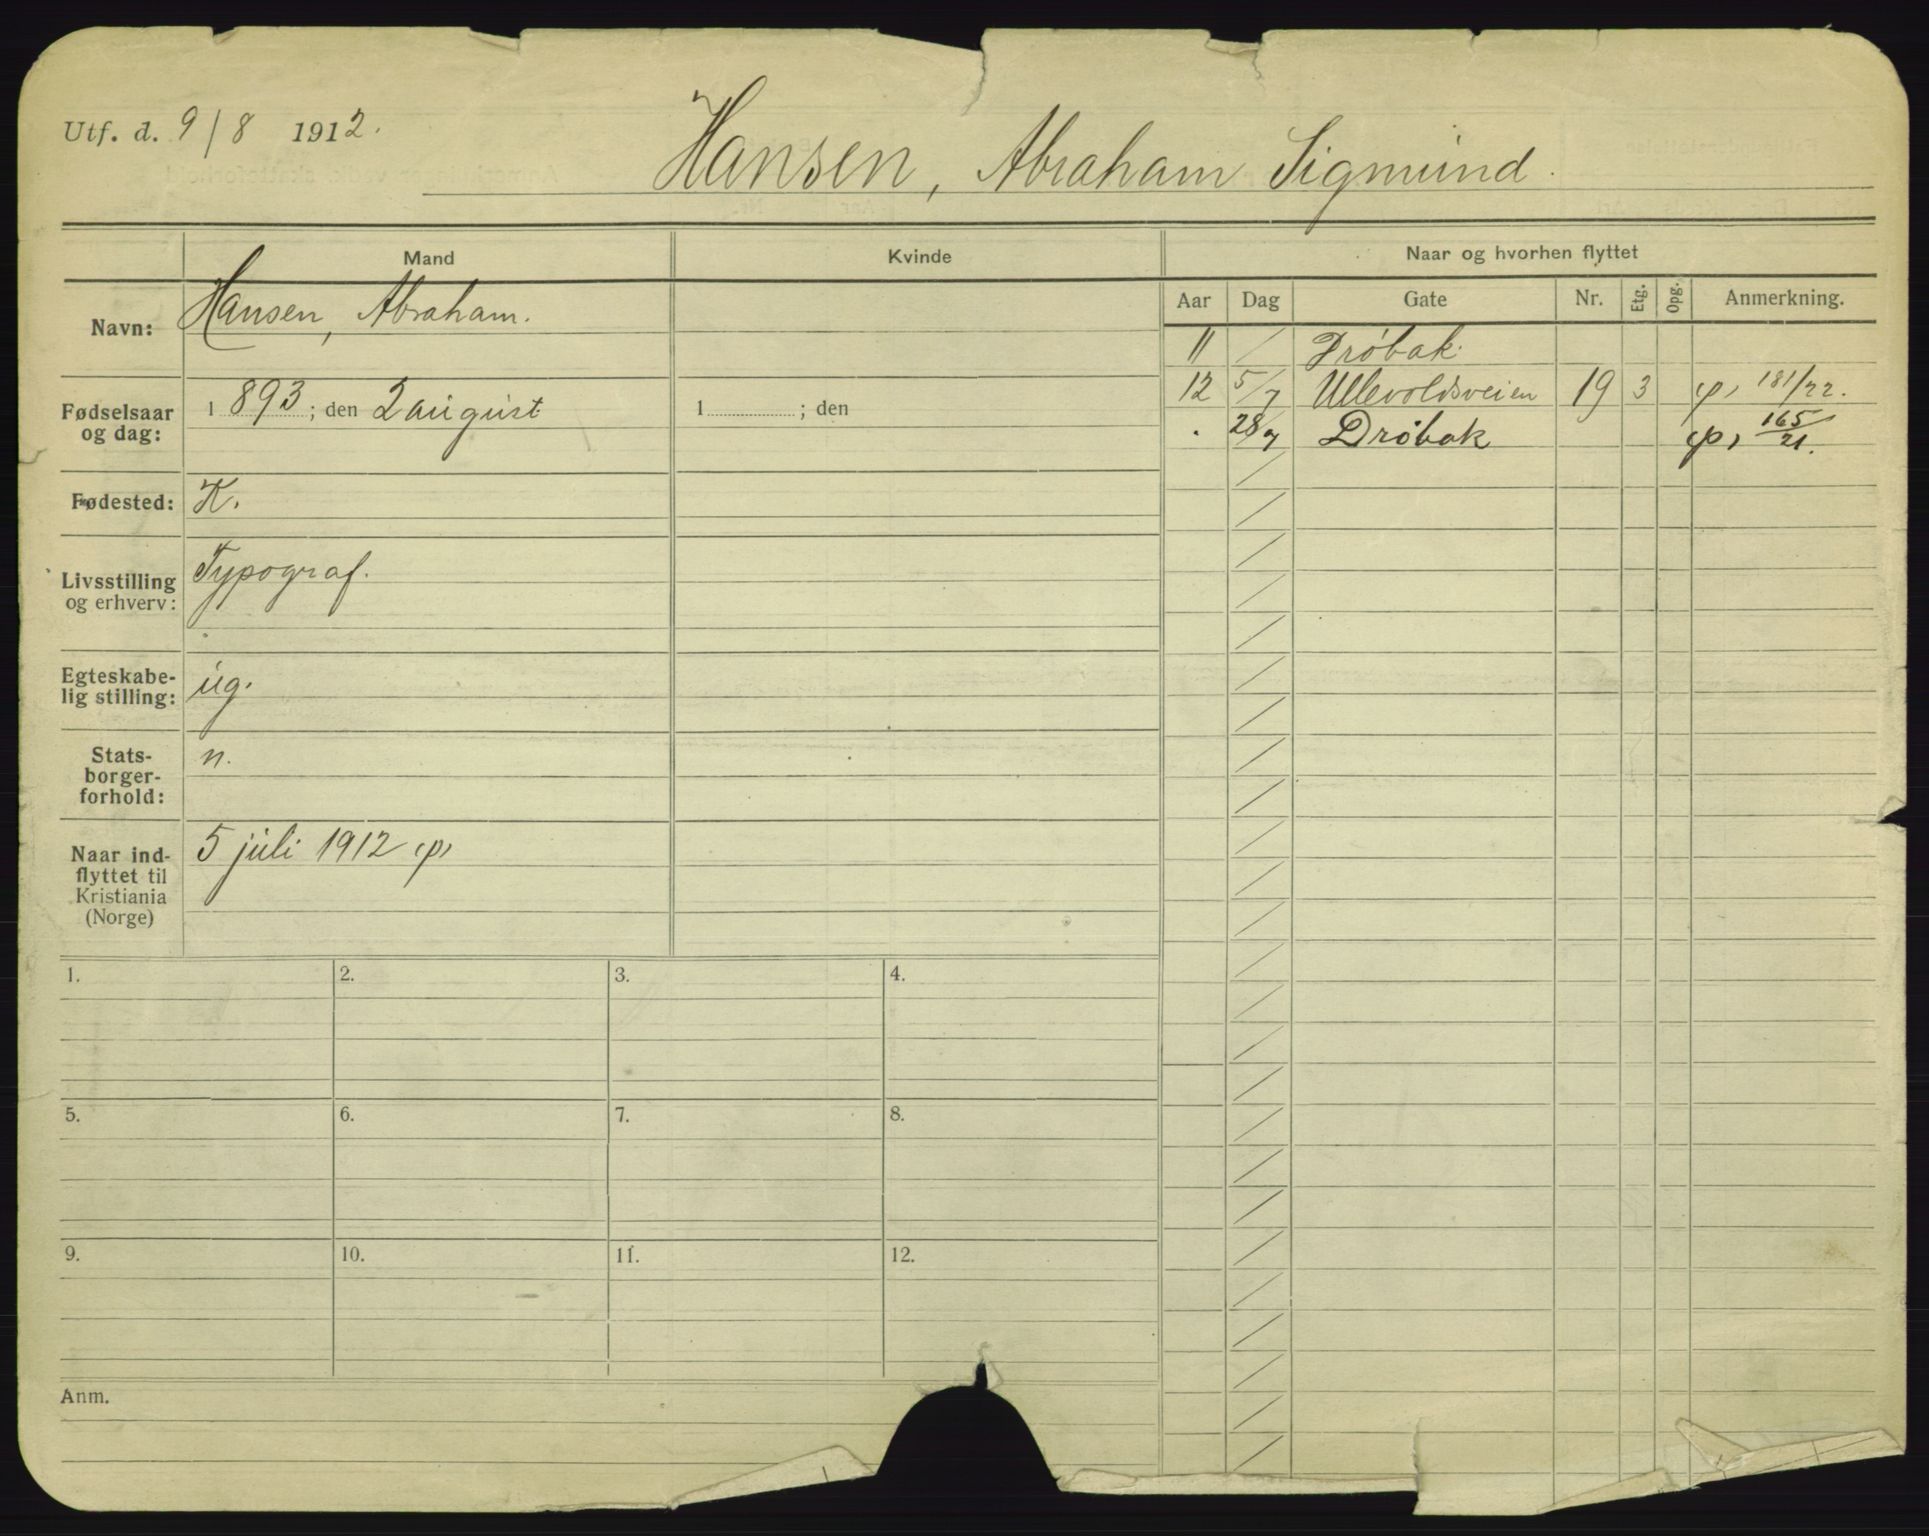 Utf. d. 9/8 1912.
Hansen, Abraham Sigmund.
Mand
Kvinde
Naar og hvorhen flyttet
Navn: Hansen, Abraham.
Fødselsaar og dag: 1893; den 2 august
1 ; den
Fødested: K.
Livsstilling og erhverv: Typograf.
Egteskabe-
lig stilling: ug.
Stats-
borger-
forhold: n.
Naar ind-
flyttet til
Kristiania
(Norge)
5 juli 1912 (p)
Aar Dag Gate Nr. Etg. Opg. Anmerkning.
11 / Drøbak.
12 5/7 Ullevoldsveien 19 3 (p) 181/22.
. 28/7 Drøbak (p) 165/21.
1. 2. 3. 4.
5. 6. 7. 8.
9. 10. 11. 12.
Anm.